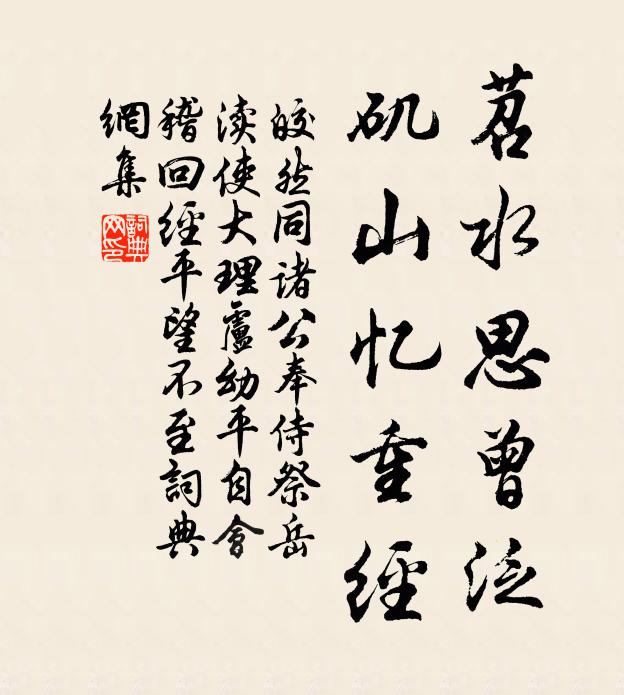 苕水思曾泛
矶山忆重经
皎然同诸公奉侍祭岳
渎使大理卢幼平自会
稽回经平望不至词典
網集
詞典網印